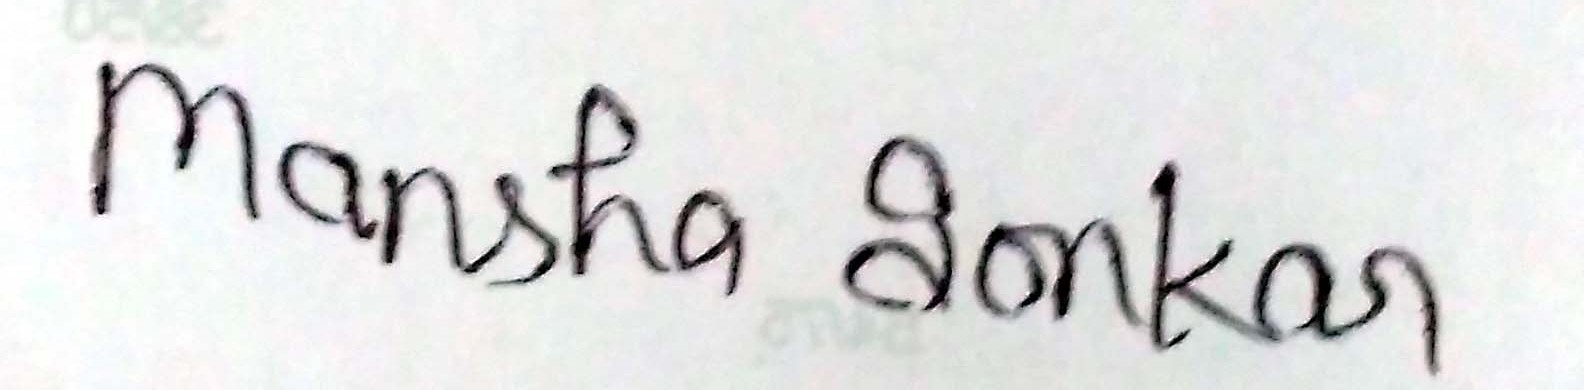 Mansha Sonkar